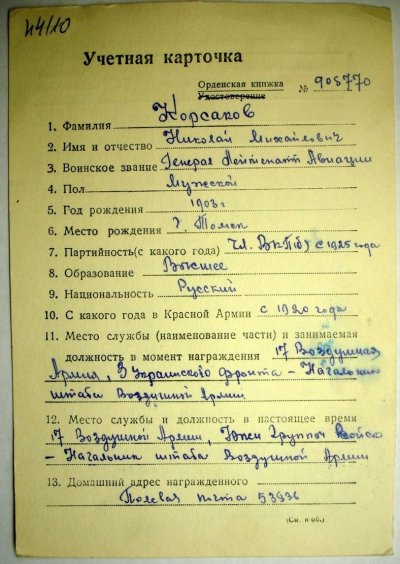 44/10
Учетная карточка
Орденская книжка
Удостоверение № 905770
1. Фамилия Корсаков
2. Имя и отчество Николай Михайлович
3. Воинское звание Генерал Лейтенант Авиации
4. Пол Мужской
5. Год рождения 1903 г
6. Место рождения г Томск
7. Партийность(с какого года) Чл. ВКП(б) с 1925 года
8. Образование Высшее
9. Национальность Русский
10. С какого года в Красной Армии с 1920 года
11. Место службы (наименование части) и занимаемая
должность в момент награждения 17 Воздушная
Армия, 3 Украинского Фронта - Начальник
штаба Воздушной Армии
12. Место службы и должность в настоящее время
17 Воздушной Армии, Южн Группы Войск
- Начальник штаба Воздушной Армии
13. Домашний адрес награжденного
Полевая почта 53936
(См. н об.)